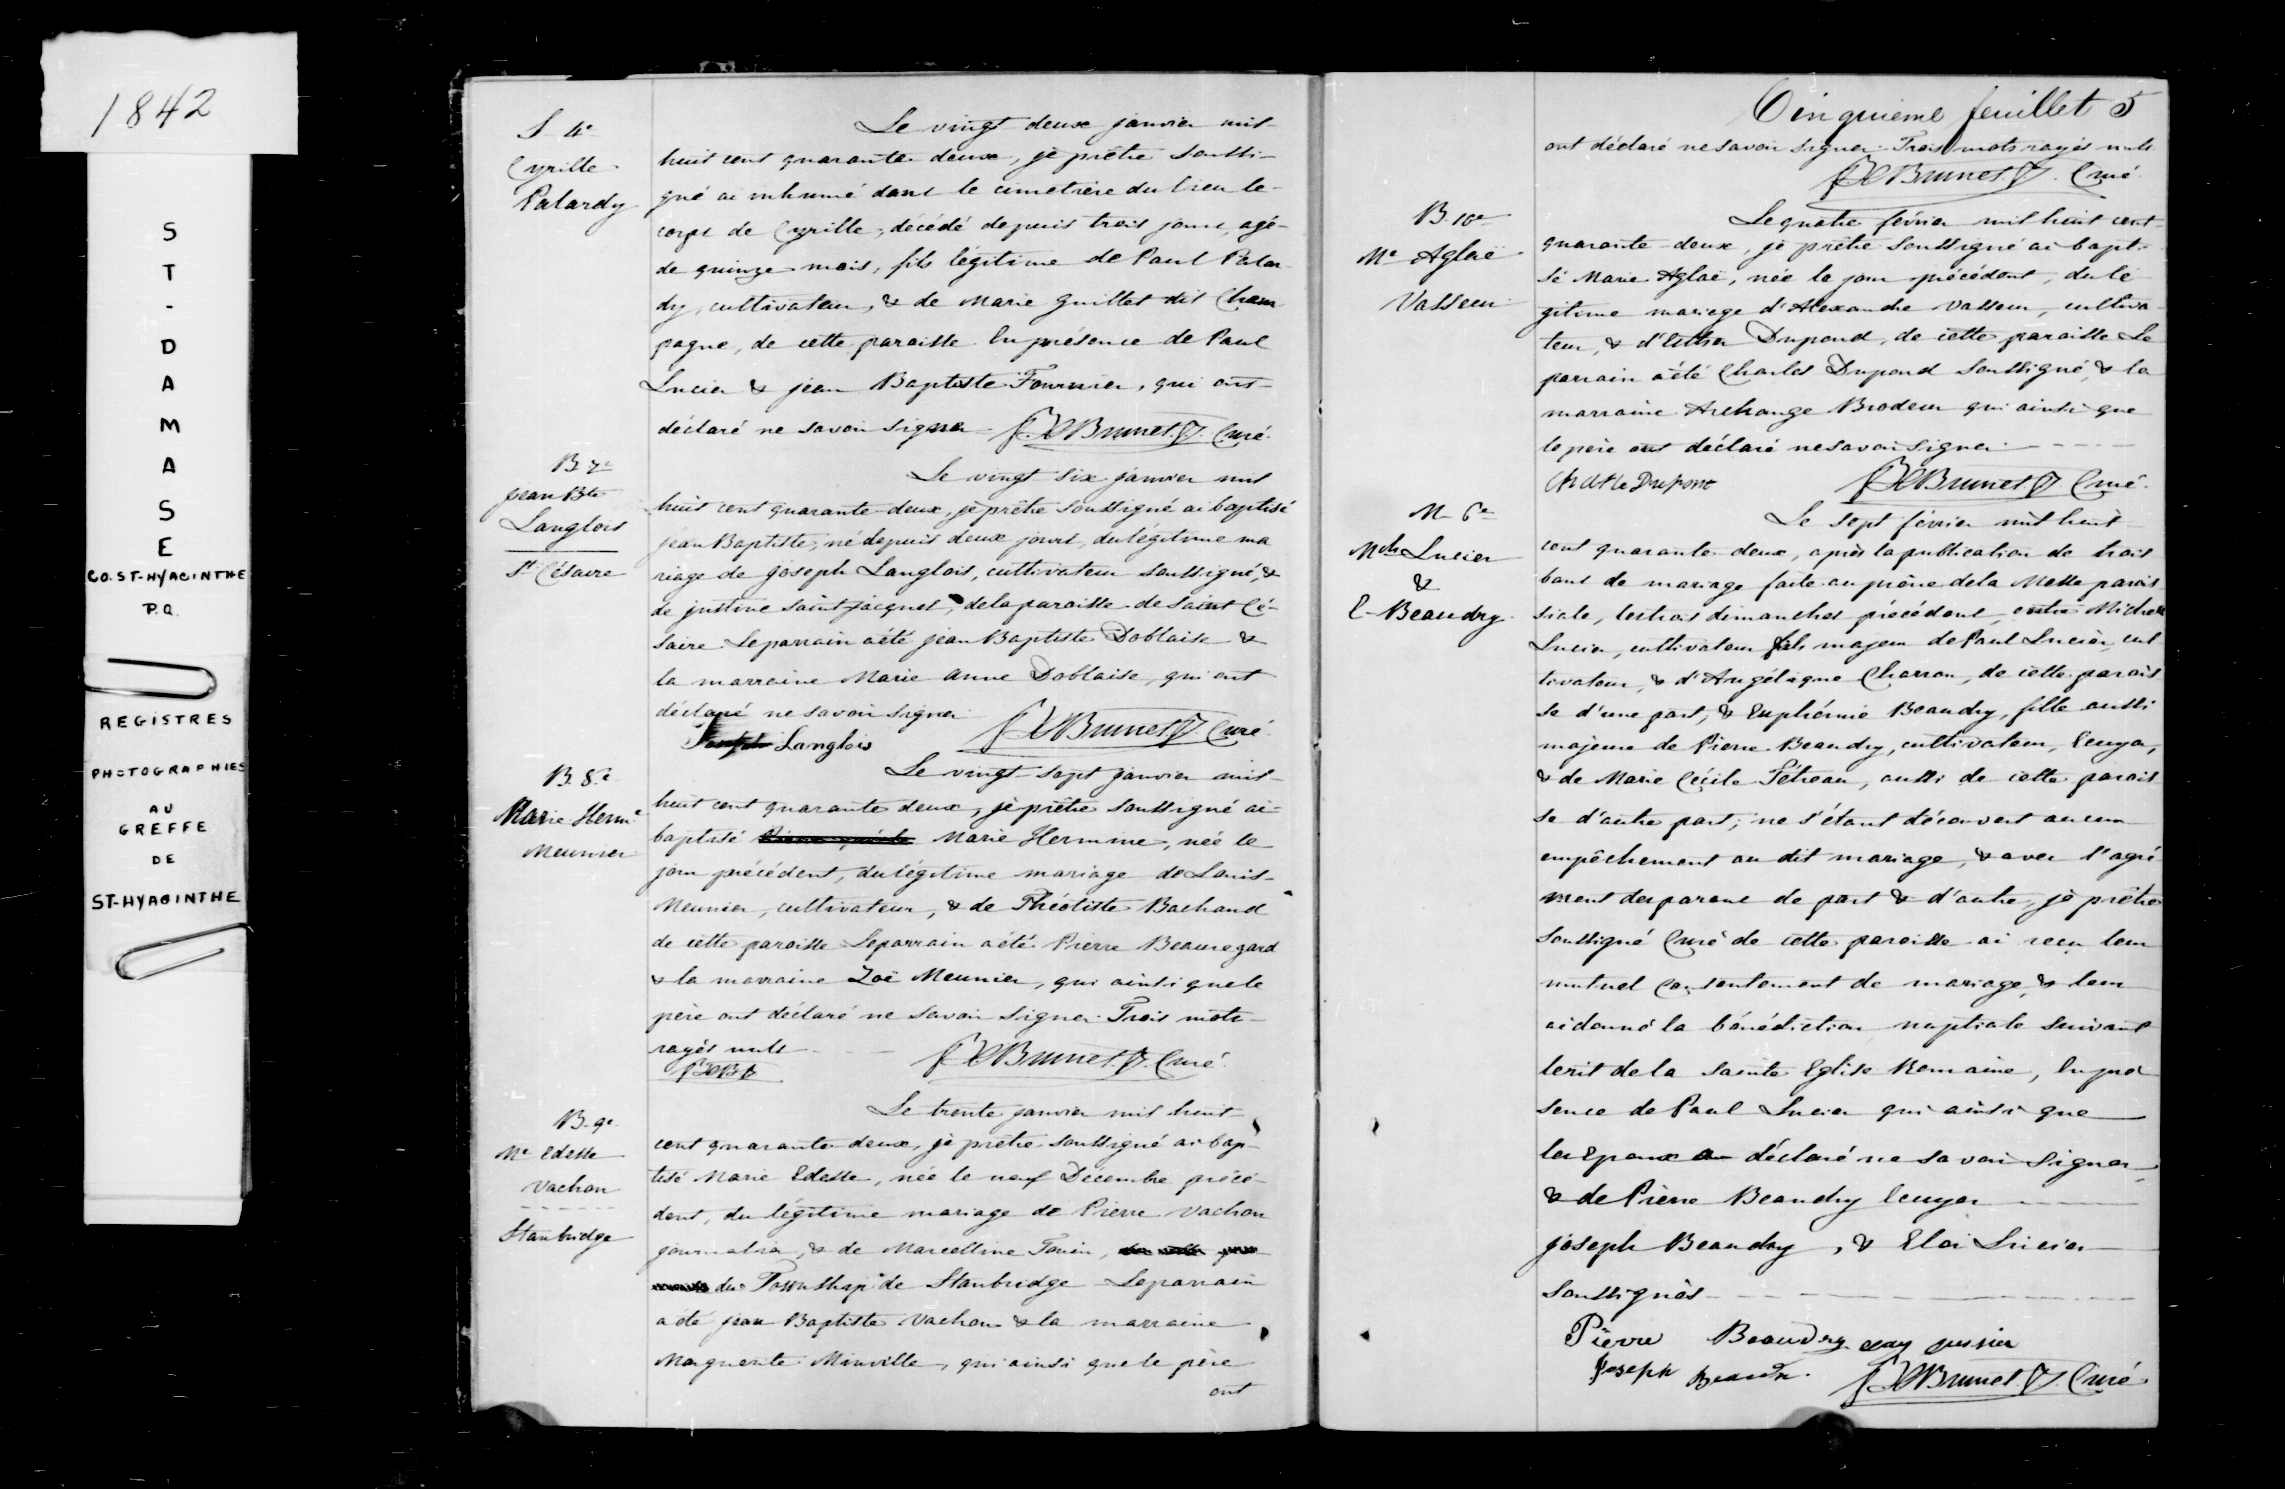 1842
ST-DAMASE
CO. ST-HYACINTHE
P.Q.
REGISTRES
PHOTOGRAPHIES
AU
GREFFE
DE
ST-HYACINTHE
S 4e
Cyrille
Palardy
Le vingt deux janvier mil
huit cent quarante deux, je prêtre soussi-
gné ai inhumé dans le cimetière du lieu le
corps de Cyrille, décédé depuis trois jours, agé
de quinze mois, fils légitime de Paul Palar
dy, cultivateur, & de Marie Guillet dit Cham
pagne, de cette paroisse. En présence de Paul
Lucier & jean Baptiste Fournier, qui ont
déclaré ne savoir signer Brunet Ptr. Curé
B. 7e
jean Bte
Langlois
St Césaire
Le vingt six janvier mil
huit cent quarante-deux, je prêtre soussigné ai baptisé
jean Baptiste, né depuis deux jours, du légitime ma
riage de joseph Langlois, cultivateur soussigné, &
de justine saint jacques, de la paroisse de Saint Cé-
saire. Le parrain a été jean Baptiste Doblaise &
la marraine Marie Anne Doblaise, qui ont
déclaré ne savoir signer
Joseph Langlois Brunet Ptr. Curé
B. 8e
Marie Hermie
Meunier
Le vingt sept janvier mil
huit cent quarante deux, je prêtre soussigné ai
baptisé Marie Hermine, née le
jour précédent, du légitime mariage de Louis
Meunier, cultivateur, & de Théotiste Bachand
de cette paroisse. Le parrain a été Pierre Beauregard
& la marraine Zoë Meunier, qui ainsi que le
père ont déclaré ne savoir signer. Trois mots
rayés nuls Brunet Ptr. Curé
B. 9e
Me Edesse
Vachon
Stanbridge
Le trente janvier mil huit
cent quarante deux, je prêtre soussigné ai bap-
tisé Marie Edesse, née le neuf Décembre précé-
dent, du légitime mariage de Pierre Vachon
journalier, & de Marcelline
du Township de Stanbridge Le parrain
a été jean Baptiste Vachon & la marraine
Marguerite Minville, qui ainsi que le père
ont
Cinquieme feuillet 5
ont déclaré ne savoir signer. Trois mots rayés nuls
Brunet Ptr. Curé
B. 10e
Me Aglaë
Vasseur
Le quatre février mil huit cent
quarante-deux, je prêtre soussigné ai bapti-
sé Marie Aglaë, née le jour précédent, du lé
gitime mariage d'Alexandre Vasseur, cultiva
teur, & d'Esther Dupond, de cette paroisse Le
parrain a été Charles Dupond soussigné, & la
marraine Archange Brodeur qui ainsi que
le père ont déclaré ne savoir signer
Charle Dupont Brunet Ptr Curé
M 6e
Mch Lucier
&
E. Beaudry
Le sept février mil huit
cent quarante-deux, après la publication de trois
bans de mariage faite au prône de la Messe parois
siale, les trois dimanches précédent, entre Michel
Lucier, cultivateur fils majeur de Paul Lucier, cul
tivateur, & d'Angélique Charron, de cette parois
se d'une part, & Euphémie Beaudry, fille aussi
majeure de Pierre Beaudry, cultivateur, Ecuyer,
& de Marie Cécile Tétreau, aussi de cette parois
se d'autre part; ne s'étant découvert aucun
empêchement au dit mariage, & avec l'agré
ment des parens de part & d'autre, je prêtre
soussigné Curé de cette paroisse ai reçu leur
mutuel consentement de mariage, & leur
ai donné la bénédiction nuptiale suivant
le rit de la Sainte Eglise Romaine, En pré
sence de Paul Lucier qui ainsi que
les Epoux déclaré ne savoir signer,
& de Pierre Beaudry Ecuyer
joseph Beaudry, & Eloi Lucier
soussignés
Pierre Beaudry
Joseph Brunet Ptr. Curé